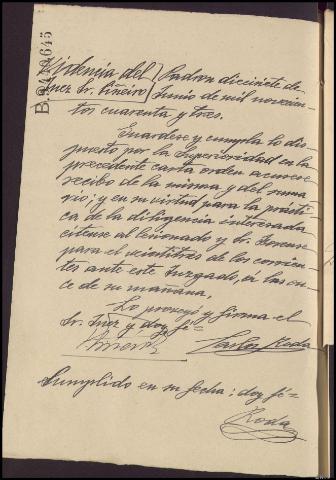 B.9410645
Providencia del / Padron diecisiete de
Juez Sr. Piñeiro / Junio de mil novecien-
tos cuarenta y tres.
Guardese y cumpla lo dis-
puesto por la Superioridad en la
precedente carta orden acusese
recibo de la misma y del suma-
rio; y en su virtud para la prácti-
ca de la diligencia interesada
citense al lesionado y Sr. Forense
para el veintitres de los corrien-
tes ante este Juzgado, á las on-
ce de su mañana,
Lo proveyó y firma el
Sr. Juez y doy fé=
Carlos Roda
Cumplido en su fecha; doy fé=
Roda